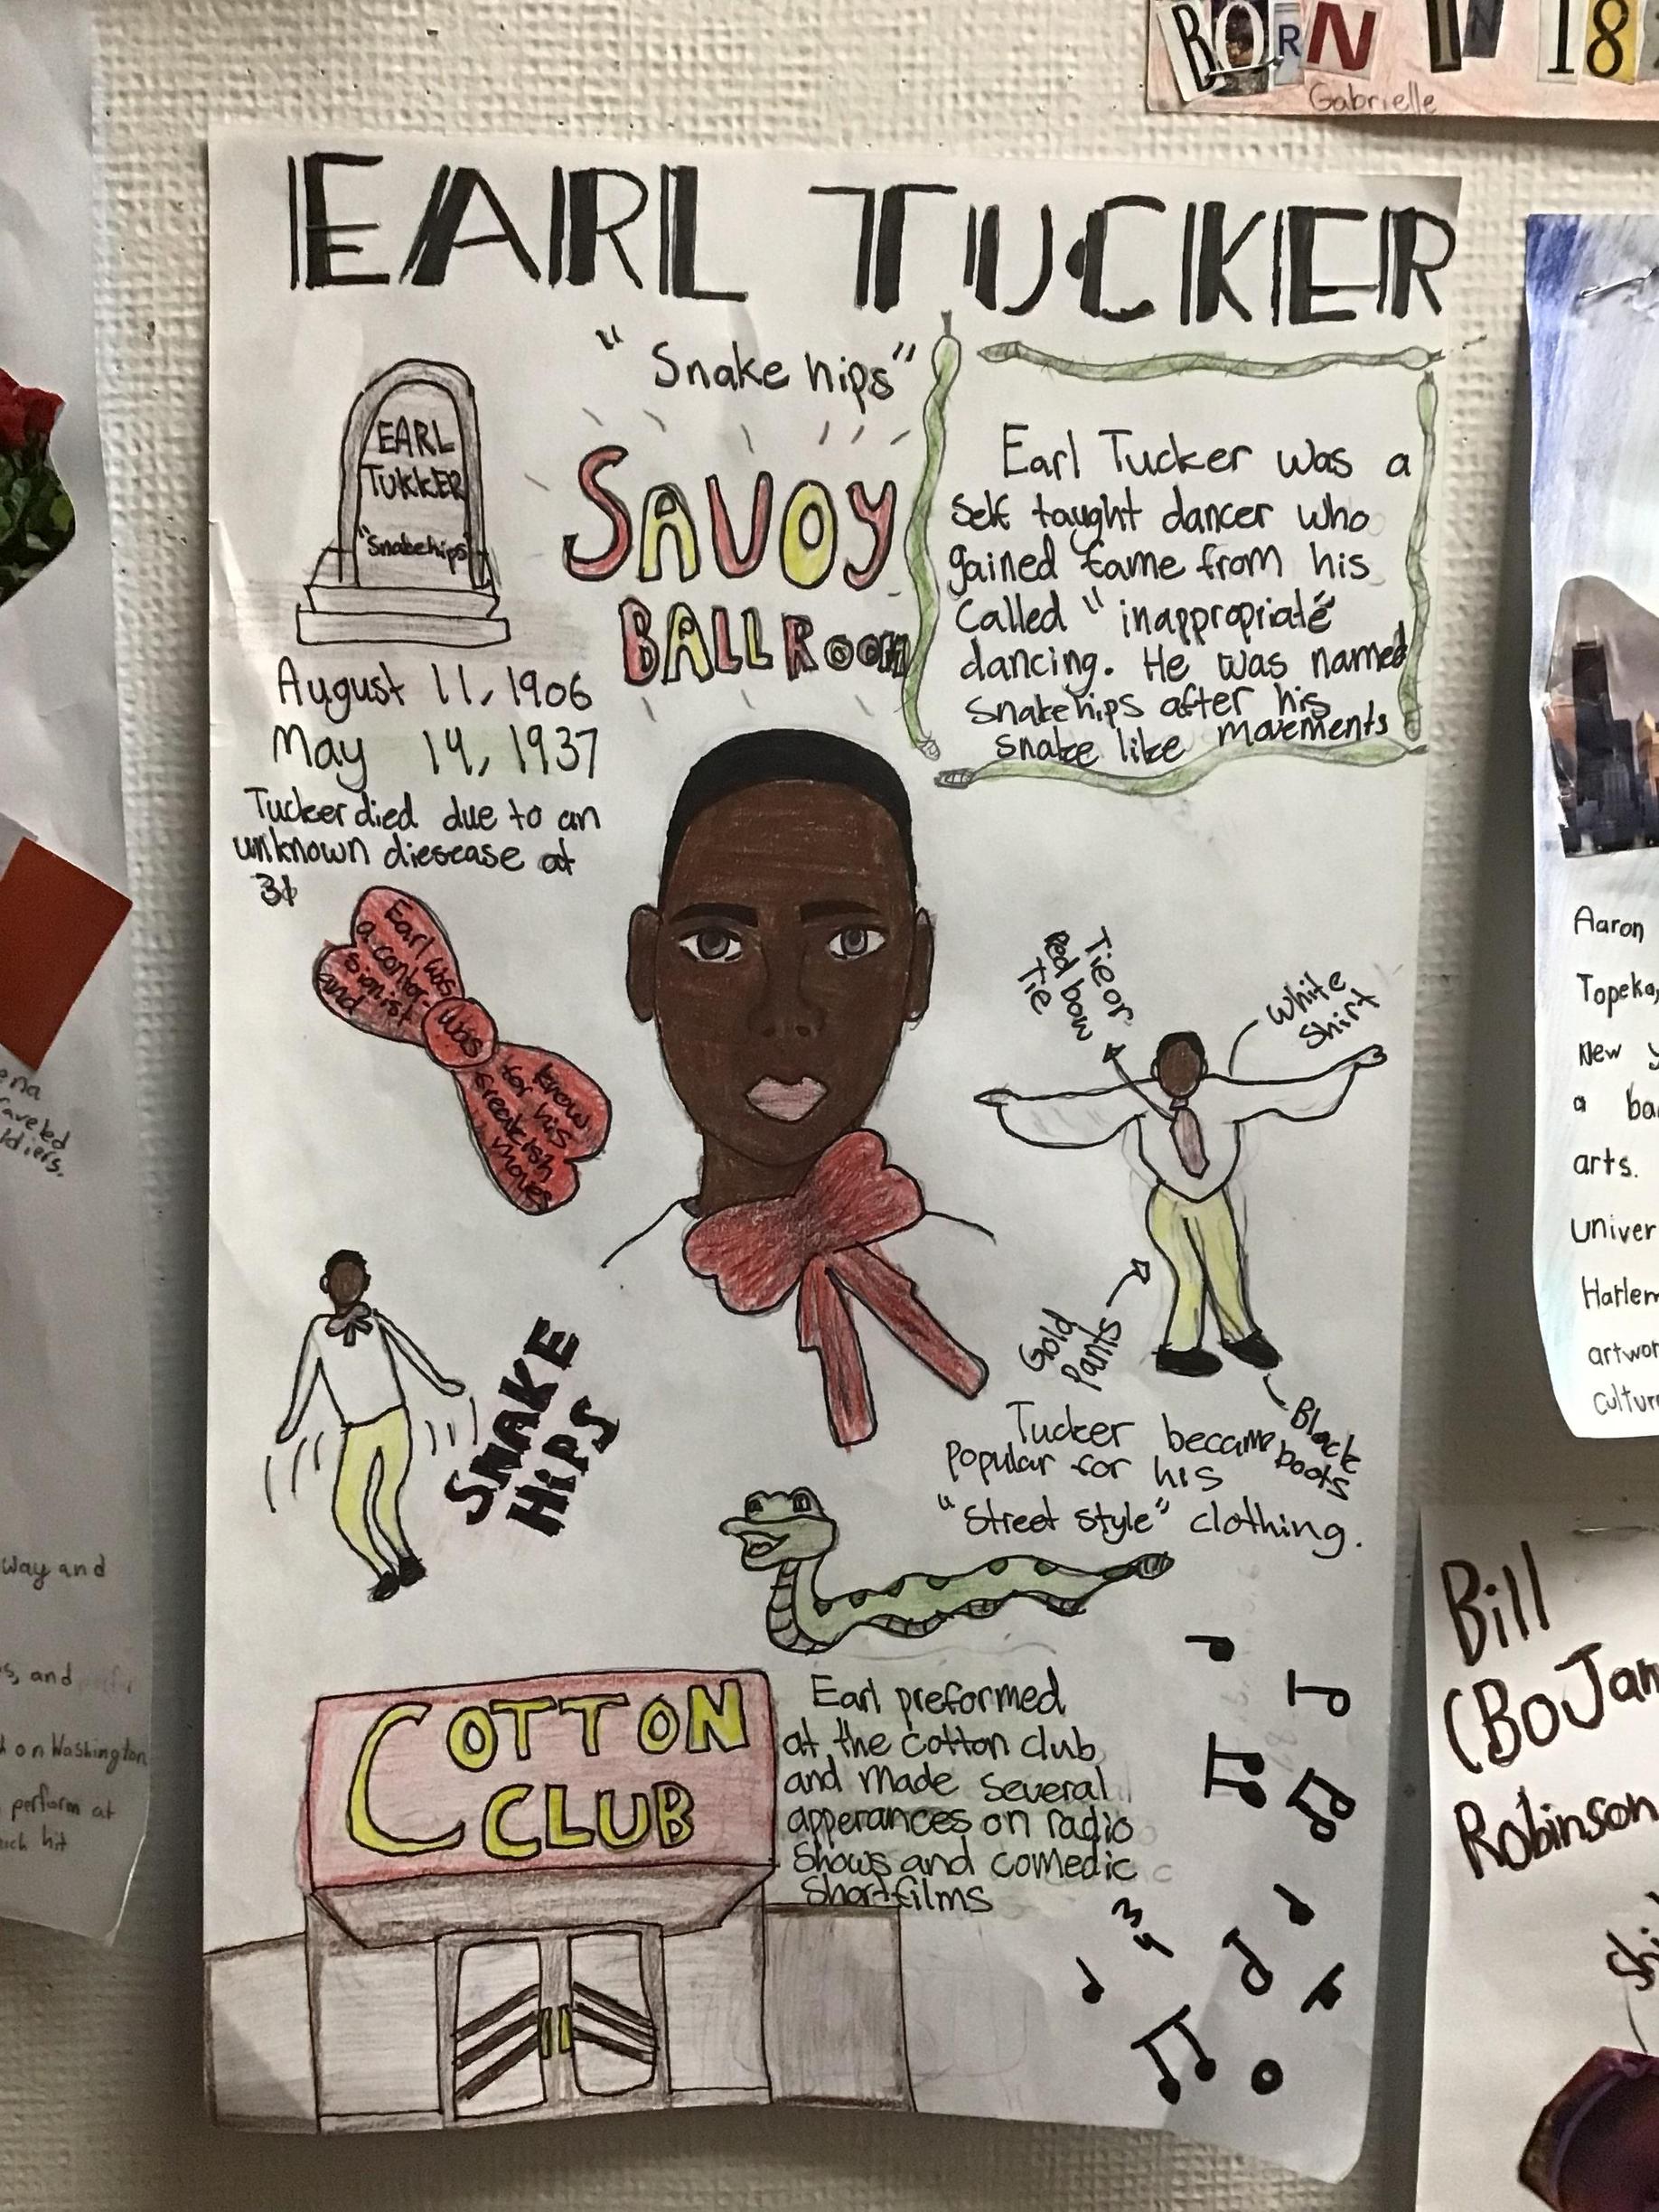 BORN IN 18
Gabrielle
EARL TUCKER
"Snake hips"
EARL
TUKKER
"Snakehips"
August 11, 1906
May 14, 1937
Tucker died due to an
unknown diesease at
31
SAVOY
BALLROOM
Earl Tucker was a
self taught dancer who
gained fame from his
called "inappropriate"
dancing. He was named
Snakehips after his
snake like movements
Earl was
a contor-
sionist
and
was
know
for his
freakish
moves
Tie or
Red bow
Tie
White
Shirt
Gold
Pants
Black
boots
SNAKE
HiPS
Tucker became
Popular for his
"Street style" clothing.
COTTON
CLUB
Earl preformed
at the cotton club
and made several
apperances on radio
Shows and comedic
Short films
3
4
Aaron
Topeka,
New y
a ba
arts.
Univer
Harlem
artwor
Cultur
Bill
(BoJan
Robinson
Shi
ena
raveled
ldiers.
way and
s, and
d on Washington
perform at
ich hit